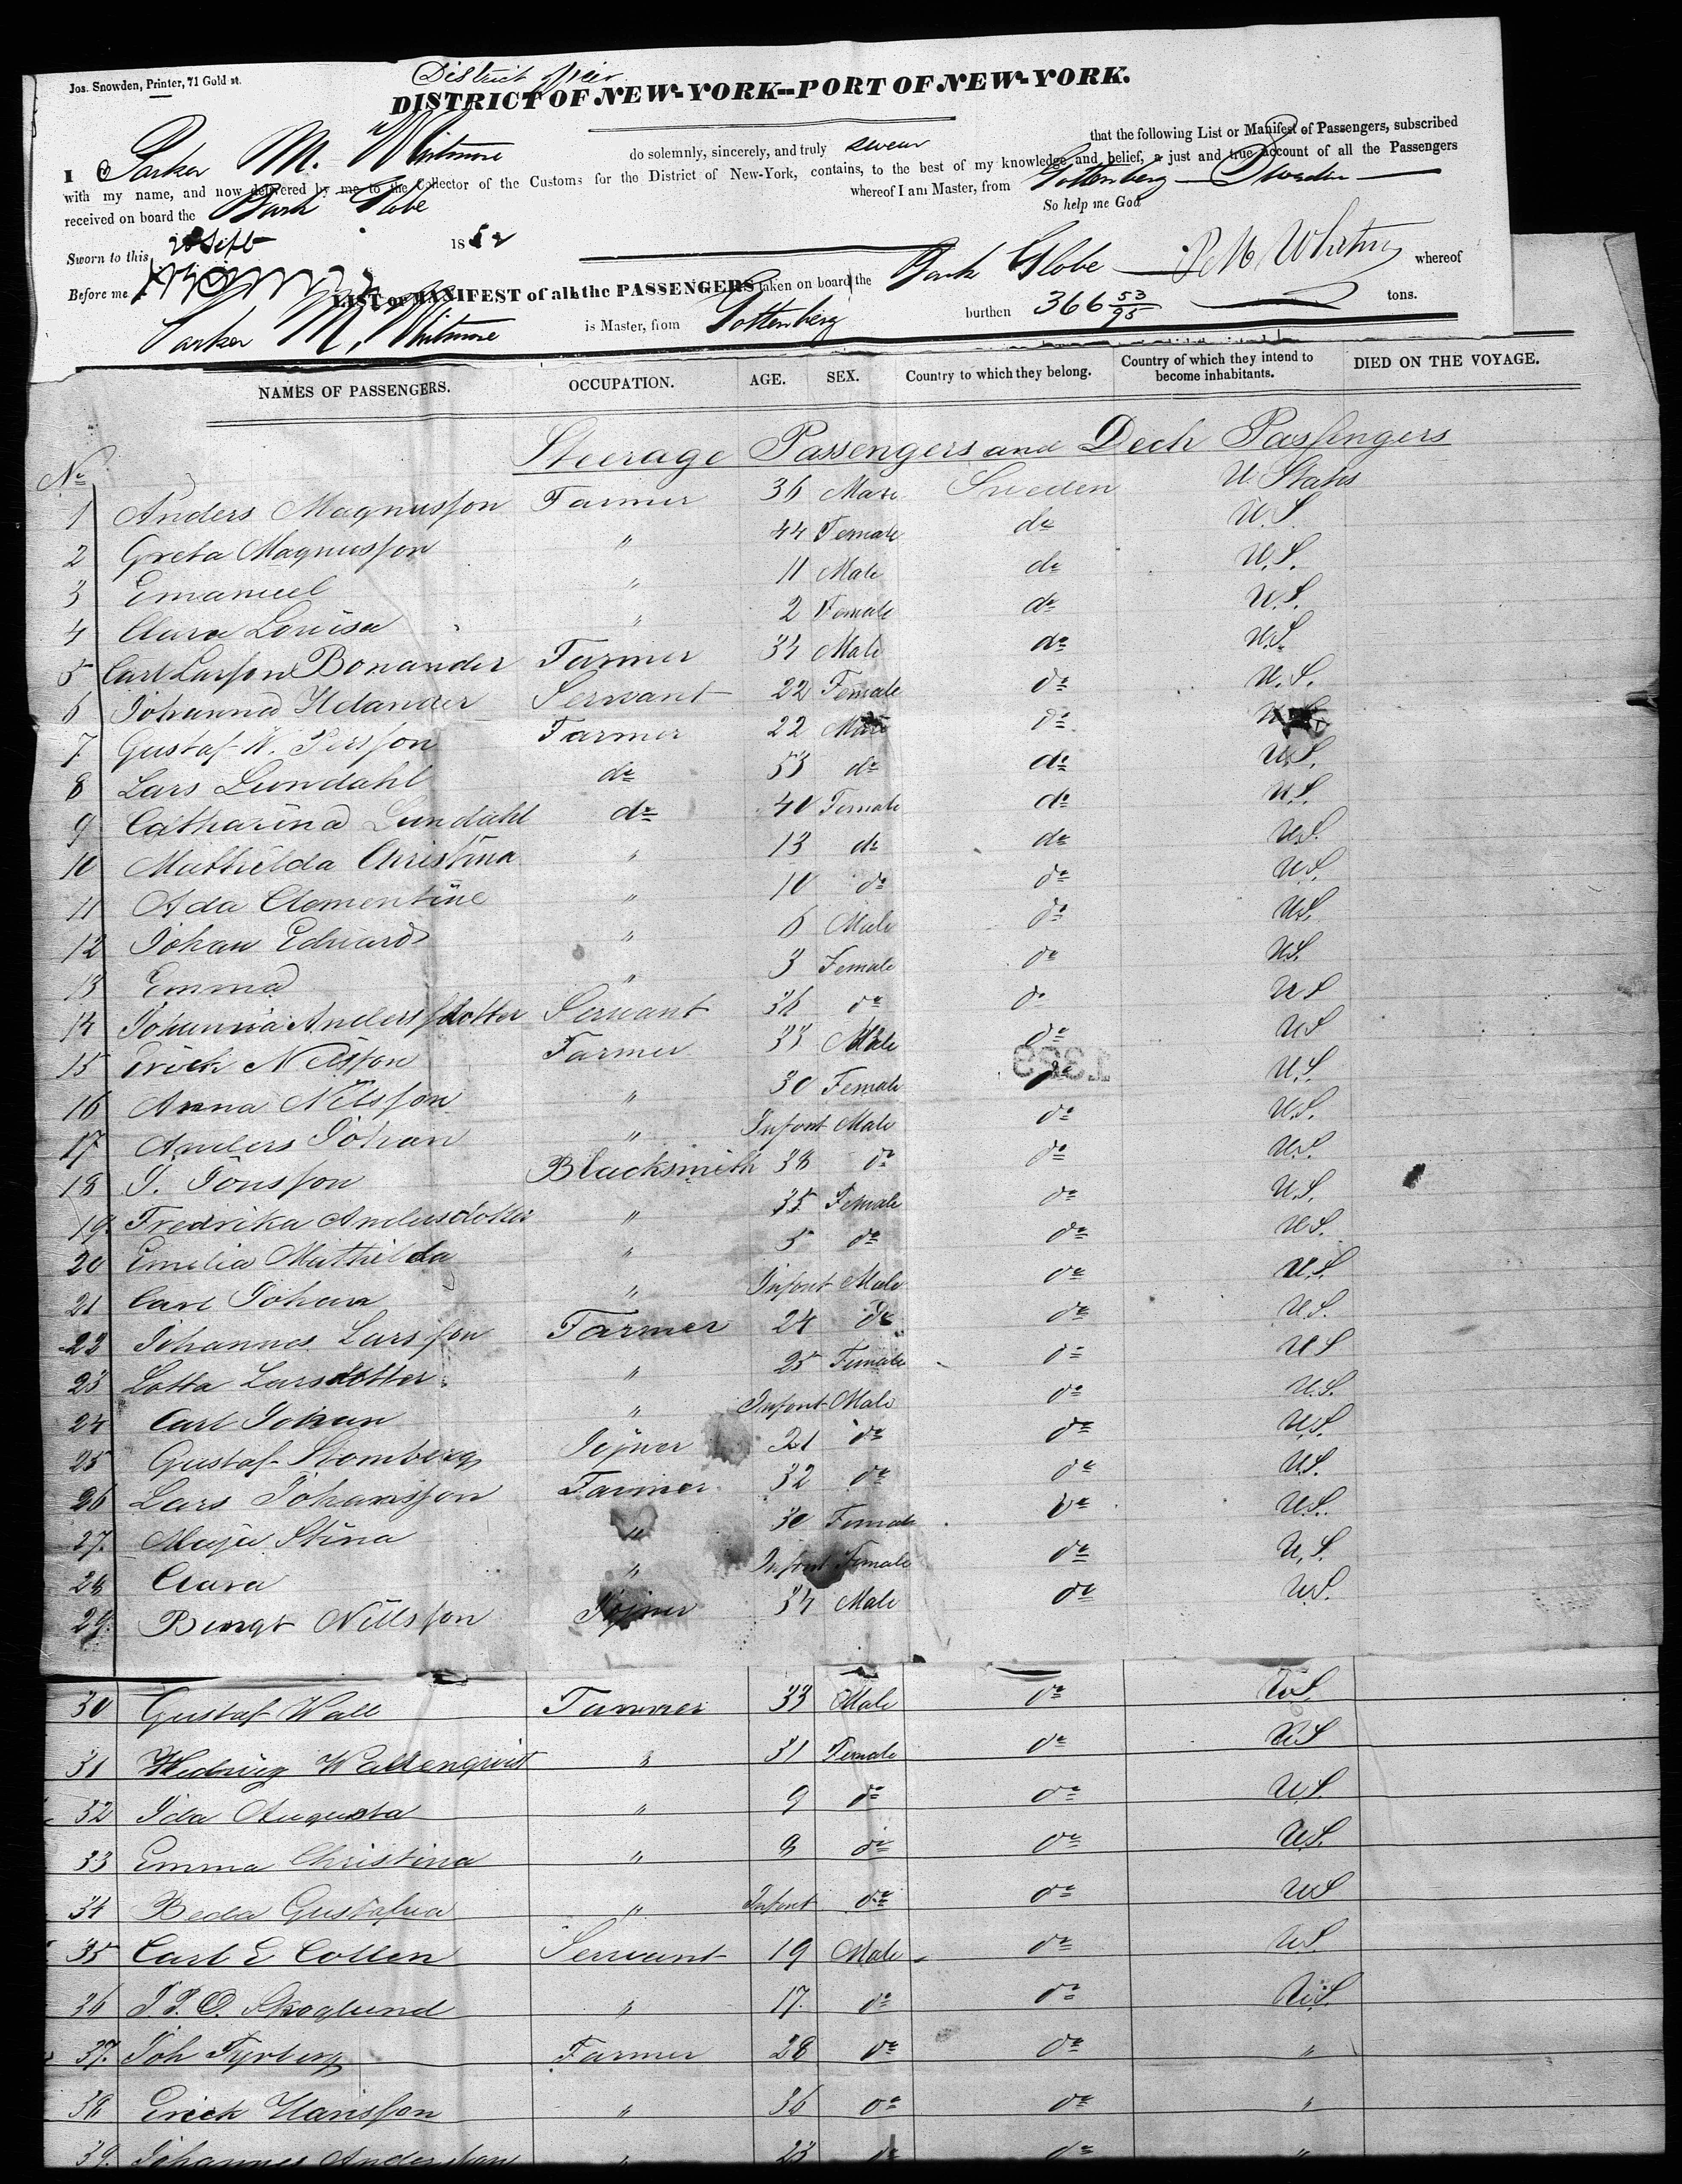 Jos. Snowden, Printer, 71 Gold st.
District of New
DISTRICT OF NEW-YORK--PORT OF NEW-YORK.
I Parker M. Whitmore do solemnly, sincerely, and truly swear that the following List or Manifest of Passengers, subscribed
with my name, and now delivered by me to the Collector of the Customs for the District of New-York, contains, to the best of my knowledge and belief, a just and true account of all the Passengers
received on board the Bark Globe whereof I am Master, from Gottenberg Sweden
So help me God
Sworn to this 28 Sept 1852
Before me
LIST or MANIFEST of all the PASSENGERS taken on board the Bark Globe whereof
Parker M. Whitmore is Master, from Gottenberg burthen 366 53/95 tons.
NAMES OF PASSENGERS. OCCUPATION. AGE. SEX. Country to which they belong. Country of which they intend to become inhabitants. DIED ON THE VOYAGE.
Steerage Passengers and Deck Passengers
No
1 Anders Magnusson Farmer 36 Male Sweden U States
2 Greta Magnusson " 44 Female do U.S.
3 Emanuel " 11 Male do U.S.
4 Clara Louisa " 2 Female do U.S.
5 Carl Larson Bonander Farmer 34 Male do U.S.
6 Johanna Helander Servant 22 Female do U.S.
7 Gustaf W. Persson Farmer 22 Male do
8 Lars Lundahl do 53 do do U.S.
9 Catharina Lundahl do 40 Female do U.S.
10 Mathilda Christina " 13 do do U.S.
11 Ada Clementine " 10 do do U.S.
12 Johan Edward " 6 Male do U.S.
13 Emma " 3 Female do U.S.
14 Johanna Andersdotter Servant 36 do do U.S
15 Erick Nilsson Farmer 33 Male do U.S
16 Anna Nilsson " 30 Female do U.S.
17 Anders Johan " Infant Male do U.S.
18 J. Jönsson Blacksmith 38 do do U.S.
19. Fredrika Andersdotter " 35 Female do U.S.
20 Emelia Mathilda " 5 do do U.S.
21 Carl Johan " Infant Male do U.S.
22 Johannes Larsson Farmer 24 do do U.S.
23 Lotta Larsdotter " 25 Female do U.S
24 Carl Johan " Infant Male do U.S.
25 Gustaf Stomberg Jojner 21 do do U.S.
26 Lars Johansson Farmer 32 do do U.S.
27. Maja Stina " 30 Female do U.S.
28 Clara " Infant Female do U.S.
29. Bengt Nillsson Jojner 34 Male do U.S.
30 Gustaf Wall Tanner 33 Male do U.S.
31 Hedwig Wallenqvist " 31 Female do U.S
32 Ida Augusta " 9 do do U.S.
33 Emma Christina " do do U.S.
34 Beda Gustafva " Infant do do U.S
35 Carl E Collen Servant 19 Male do U.S.
36 J.P.O. Skoglund " 17. do do U.S.
37. Joh Tyrberg Farmer 28 do do "
38 Erick Hansson " 36 do do "
39. Johannes Andersson " 23 do do "